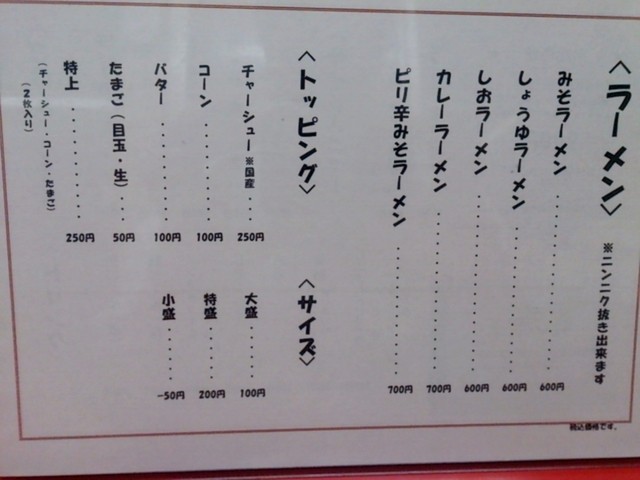 〈ラーメン〉 ※ニンニク抜き出来ます
みそラーメン 600円
しょうゆラーメン 600円
しおラーメン 600円
カレーラーメン 700円
ピリ辛みそラーメン 700円
〈トッピング〉
チャーシュー※国産 250円
コーン 100円
バター 100円
たまご(目玉・生) 50円
特上 250円
(チャーシュー・コーン・たまご)
(2枚入り)
〈サイズ〉
大盛 100円
特盛 200円
小盛 -50円
税込価格です。